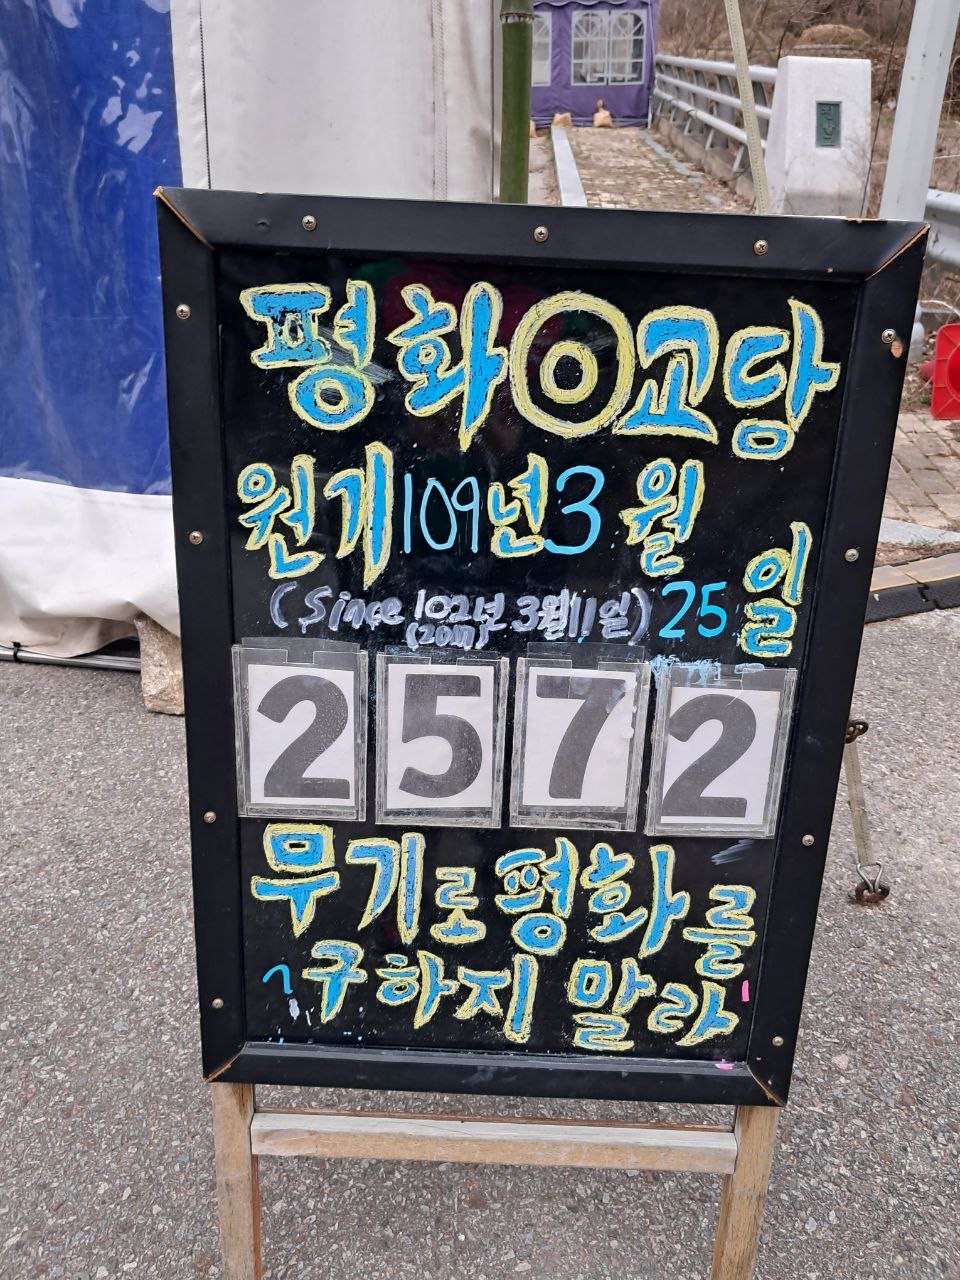 평화○교당
원기109년3월
25일
(Since 102년 3월11일)
(2017)
2572
무기로평화를
~구하지 말라